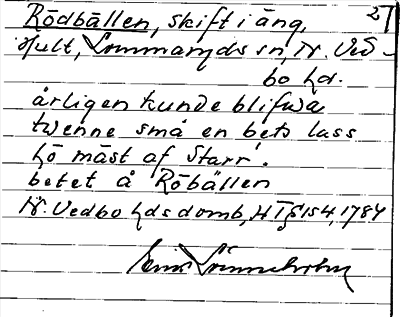 Rödbällen, skift i äng, 27
Hult, Lommaryds sn, N. Ved-
bo hd.
årligen kunde blifwa
twenne små en bets lass
hö mäst af Starr!
betet å Röbällen
N. Vedbo hds domb, HT § 154, 1784